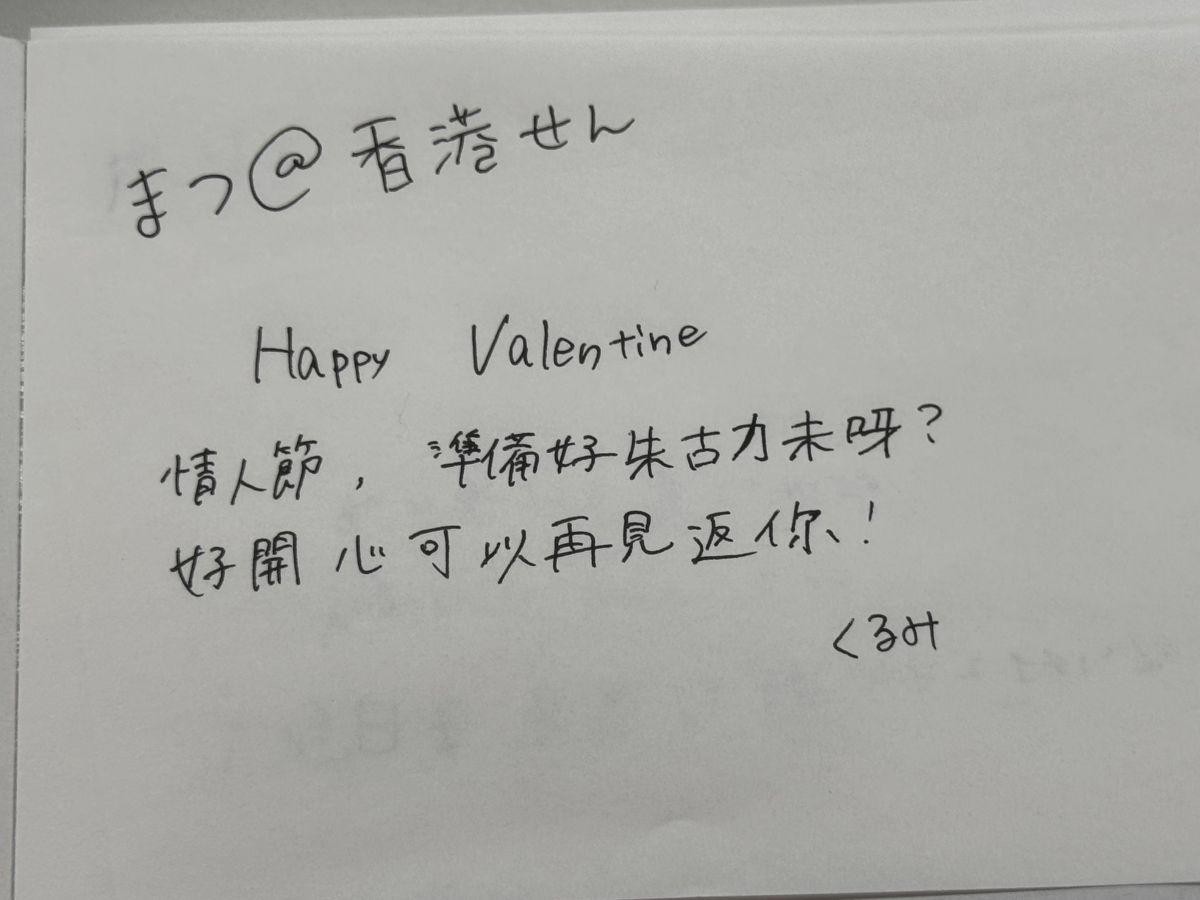 まつ@香港せん
Happy Valentine
情人節, 準備好朱古力未呀?
好開心可以再見返你、!
くるみ